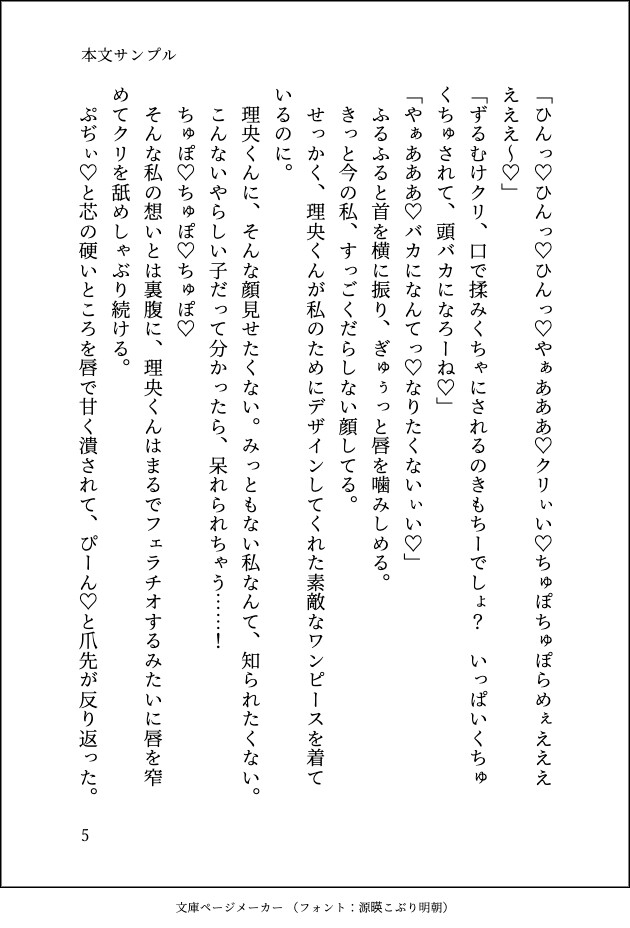 本文サンプル
「ひんっ♡ひんっ♡ひんっ♡やぁあああ♡クリぃい♡ちゅぽちゅぽらめぇえええ
えええ～♡」
「ずるむけクリ、口で揉みくちゃにされるのきもちーでしょ？　いっぱいくちゅ
くちゅされて、頭バカになろーね♡」
「やぁあああ♡バカになんてっ♡なりたくないぃい♡」
ふるふると首を横に振り、ぎゅぅっと唇を噛みしめる。
きっと今の私、すっごくだらしない顔してる。
せっかく、理央くんが私のためにデザインしてくれた素敵なワンピースを着て
いるのに。
理央くんに、そんな顔見せたくない。みっともない私なんて、知られたくない。
こんないやらしい子だって分かったら、呆れられちゃう……！
ちゅぽ♡ちゅぽ♡ちゅぽ♡
そんな私の想いとは裏腹に、理央くんはまるでフェラチオするみたいに唇を窄
めてクリを舐めしゃぶり続ける。
ぷぢぃ♡と芯の硬いところを唇で甘く潰されて、ぴーん♡と爪先が反り返った。
5
文庫ページメーカー（フォント：源暎こぶり明朝）